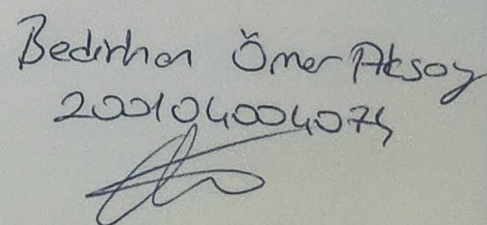 Bedirhan Ömer Aksoy
200104004074